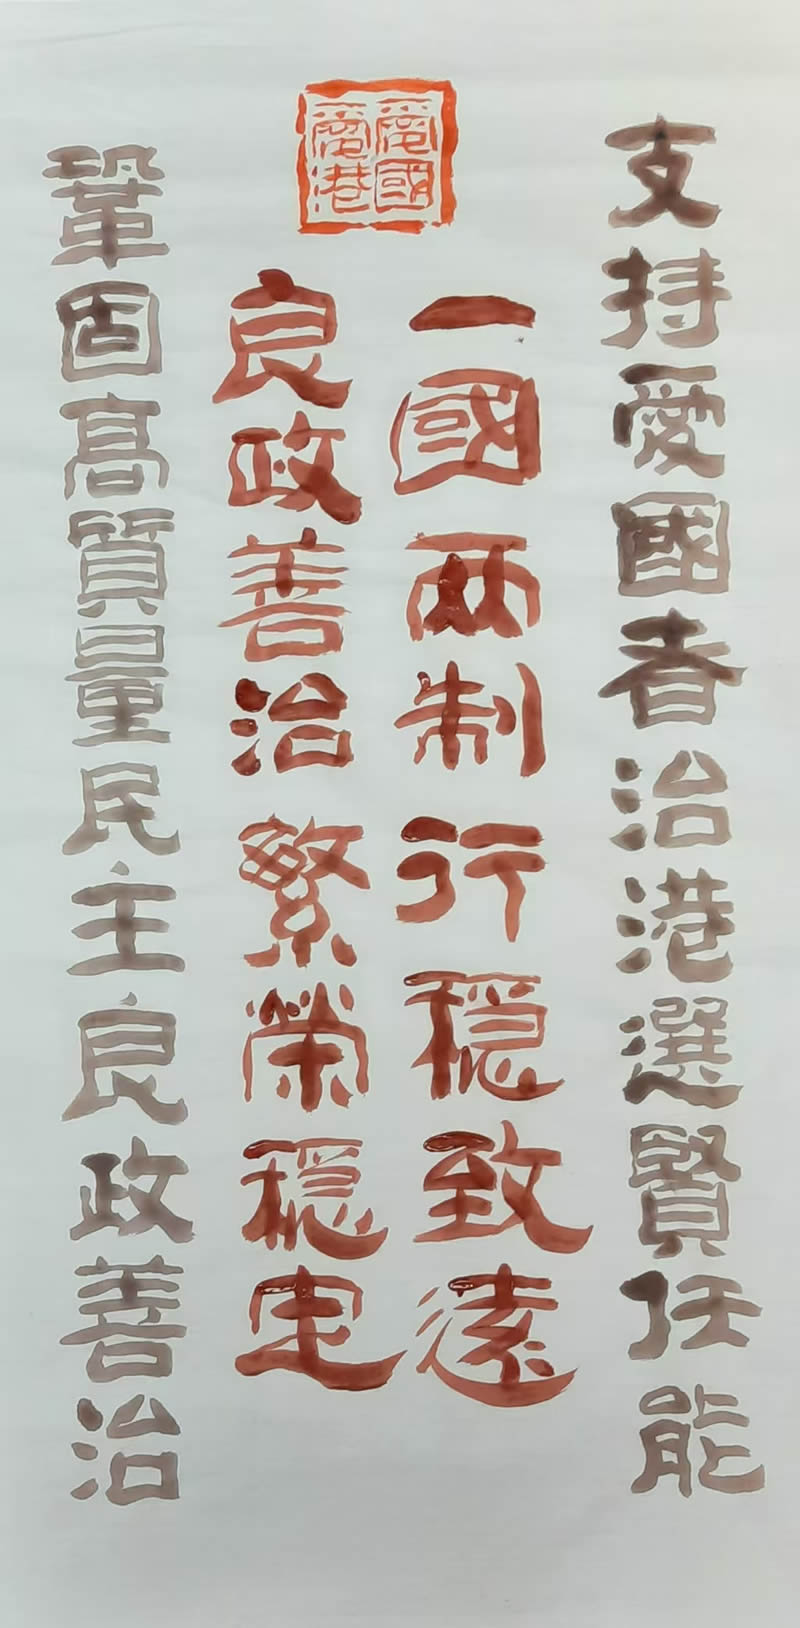 愛國
愛港
支持愛國者治港選賢任能
一國两制行稳致遠
良政善治繁榮穏定
鞏固高質量民主良政善治